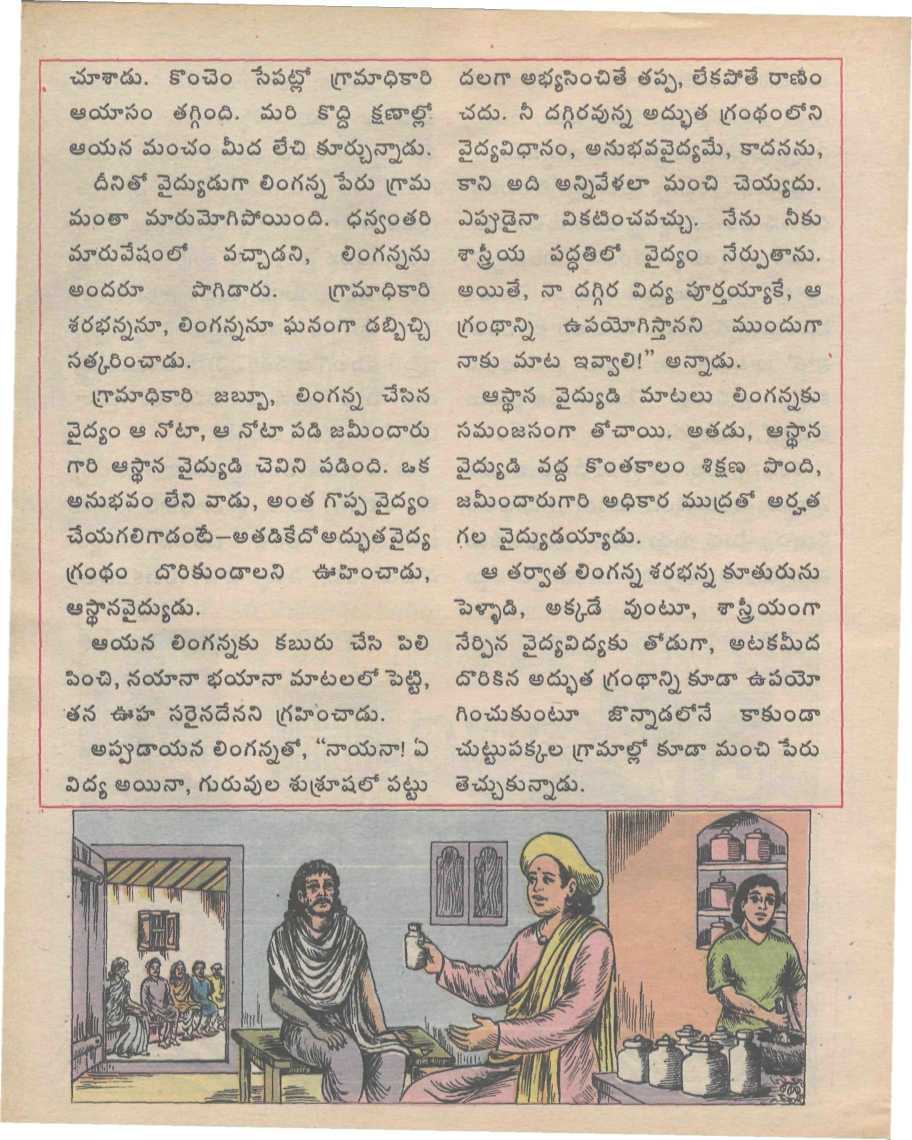 చూశాడు. కొంచెం సేపట్లో గ్రామాధికారి
ఆయాసం తగ్గింది. మరి కొద్ది క్షణాల్లో
ఆయన మంచం మీద లేచి కూర్చున్నాడు.
దీనితో వైద్యుడుగా లింగన్న పేరు గ్రామ
మంతా మారుమోగిపోయింది. ధన్వంతరి
మారువేషంలో వచ్చాడని, లింగన్నను
అందరూ పొగిడారు. గ్రామాధికారి
శరభన్ననూ, లింగన్ననూ ఘనంగా డబ్బిచ్చి
సత్కరించాడు.
గ్రామాధికారి జబ్బూ, లింగన్న చేసిన
వైద్యం ఆ నోటా, ఆ నోటా పడి జమీందారు
గారి ఆస్థాన వైద్యుడి చెవిని పడింది. ఒక
అనుభవం లేని వాడు, అంత గొప్ప వైద్యం
చేయగలిగాడంటే—అతడికేదో అద్భుతవైద్య
గ్రంథం దొరికుండాలని ఊహించాడు,
ఆస్థానవైద్యుడు.
ఆయన లింగన్నకు కబురు చేసి పిలి
పించి, నయానా భయానా మాటలలో పెట్టి,
తన ఊహ సరైనదేనని గ్రహించాడు.
అప్పుడాయన లింగన్నతో, “నాయనా! ఏ
విద్య అయినా, గురువుల శుశ్రూషలో పట్టు
దలగా అభ్యసించితే తప్ప, లేకపోతే రాణిం
చదు. నీ దగ్గిరవున్న అద్భుత గ్రంథంలోని
వైద్యవిధానం, అనుభవవైద్యమే, కాదనను,
కాని అది అన్నివేళలా మంచి చెయ్యదు.
ఎప్పుడైనా వికటించవచ్చు. నేను నీకు
శాస్త్రీయ పద్ధతిలో వైద్యం నేర్పుతాను.
అయితే, నా దగ్గిర విద్య పూర్తయ్యాకే, ఆ
గ్రంథాన్ని ఉపయోగిస్తానని ముందుగా
నాకు మాట ఇవ్వాలి!” అన్నాడు.
ఆస్థాన వైద్యుడి మాటలు లింగన్నకు
సమంజసంగా తోచాయి. అతడు, ఆస్థాన
వైద్యుడి వద్ద కొంతకాలం శిక్షణ పొంది,
జమీందారుగారి అధికార ముద్రతో అర్హత
గల వైద్యుడయ్యాడు.
ఆ తర్వాత లింగన్న శరభన్న కూతురును
పెళ్ళాడి, అక్కడే వుంటూ, శాస్త్రీయంగా
నేర్పిన వైద్యవిద్యకు తోడుగా, అటకమీద
దొరికిన అద్భుత గ్రంథాన్ని కూడా ఉపయో
గించుకుంటూ జొన్నాడలోనే కాకుండా
చుట్టుపక్కల గ్రామాల్లో కూడా మంచి పేరు
తెచ్చుకున్నాడు.